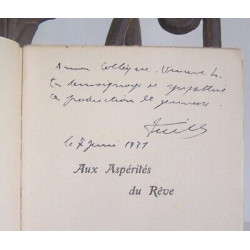 A mon Collègue Vincent L.
En témoignage de sympathie
production de jeunesse
le 7 Juin 1971
Aux Aspérités
du Rêve